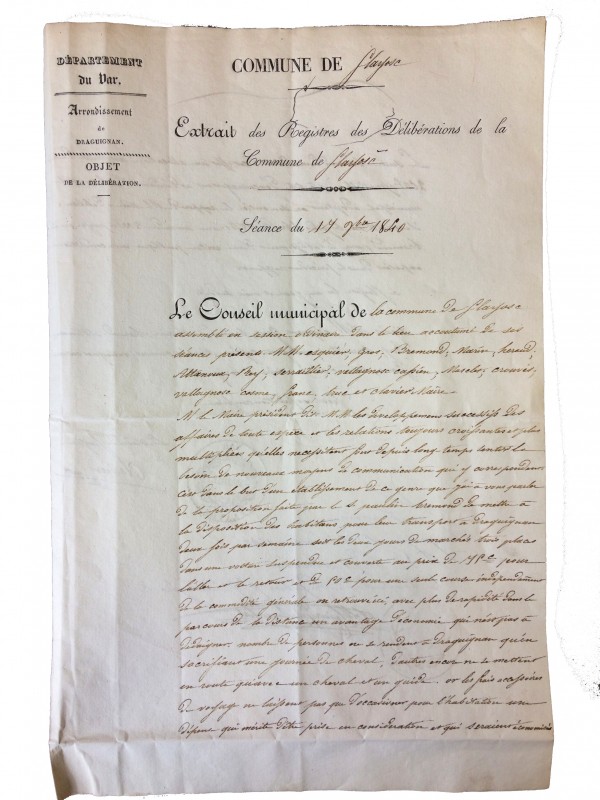 DÉPARTEMENT
du Var.
Arrondissement
de
DRAGUIGNAN.
OBJET
DE LA DÉLIBÉRATION.
COMMUNE DE flayosc
Extrait des Registres des Délibérations de la
Commune de flayosc
Séance du 17 9bre 1840
Le Conseil municipal de la commune de flayosc
assemblé en session ordinaire dans le lieu accoutumé de ses
séances présents MM. esquier, Gros, Bremond, Marin, heraud,
Rey, serraillier, vallagnosc casien, Maselet, crouvès,
vallagnosc cosme, franc, truc et clavier Maire.
M. le Maire président dit MM les developpemens successifs des
affaires de toute espèce et les relations toujours croissantes et plus
multipliées qu'elles necessitent font depuis long temps sentir le
besoin de nouveaux moyens de communication qui y correspondent
C'est dans le but d'un établissement de ce genre que j'ai à vous parler
de la proposition faite par le s. paulin bremond de mettre à
la disposition des habitans pour leur transport à draguignan
deux fois par semaine soit les deux jours de marché trois places
dans une voiture suspendue et couverte au prix de 75c pour
l'aller et le retour et de 50c pour une seule course independamment
de la commodité générale on retrouverait avec plus de rapidité dans le
parcours de la distance un avantage d'économie qui n'est pas à
dedaigner. nombre de personnes ne se rendent à draguignan qu'en
sacrifiant une journée de cheval, d'autres encore ne se mettent
en route qu'avec un cheval et un guide. or les frais accessoires
de voyage ne laissent pas que d'occasioner pour l'habitation une
dépense qui mérite d'être prise en considération et qui seraient économisés